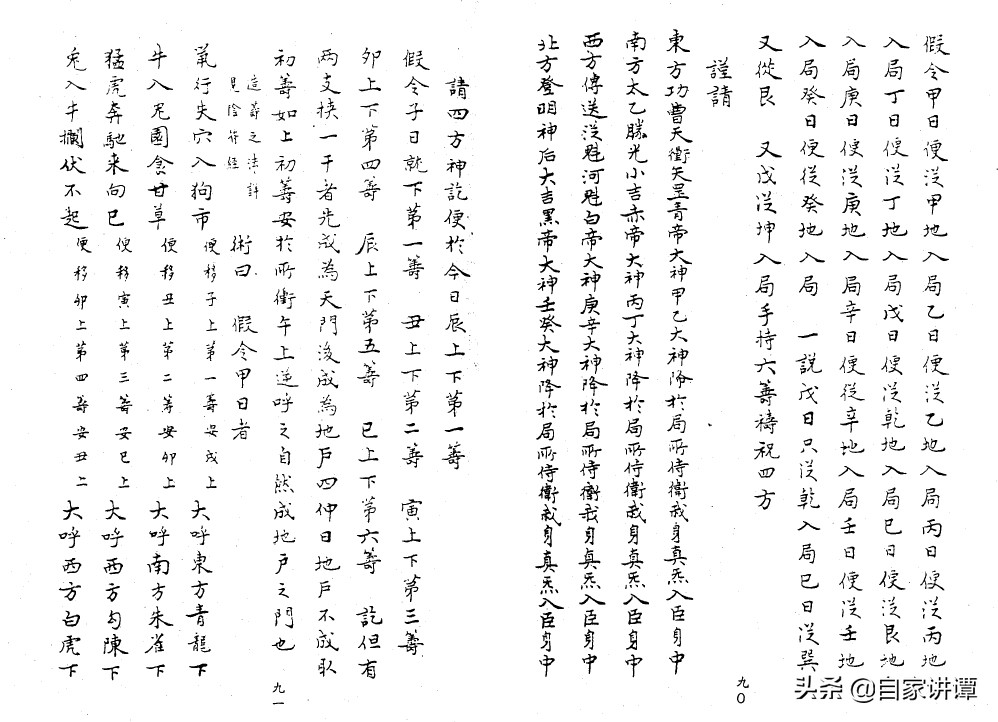 假令甲日便从甲地入局乙日便从乙地入局丙日便从丙地
入局丁日便从丁地入局戊日便从乾地入局巳日便从艮地
入局庚日便从庚地入局辛日便從辛地入局壬日便从壬地
入局癸日便從癸地入局 一說戊日只从乾入局巳日从巽
又從艮 又戊从坤入局手持六筭禱祝四方
謹請
東方功曹天衝天罡青帝大神甲乙大神降於局所侍衞我身真炁入臣身中
南方太乙勝光小吉赤帝大神丙丁大神降於局所侍衞我身真炁入臣身中
西方傳送从魁河魁白帝大神庚辛大神降於局所侍衞我身真炁入臣身中
北方登明神后大吉黑帝大神壬癸大神降於局所侍衞我身真炁入臣身中
九〇
請四方神訖便於今日辰上下第一筭
假令子日就下第一筭 丑上下第二筭 寅上下第三筭
卯上下第四筭 辰上下第五筭 巳上下第六筭 訖但有
两支挾一干者先成為天門後成為地戶四仲日地戶不成取
初筭如上初筭安於所衝午上逆呼之自然成地戶之門也
這筭之法詳
見陰符經
術曰 假令甲日者
鼠行失穴入狗市 便移子上第一筭安戌上 大呼東方青龍下
牛入兎園食甘草 便移丑上第二筭安卯上 大呼南方朱雀下
猛虎奔馳来向巳 便移寅上第三筭安巳上 大呼西方勾陳下
兎入牛欄伏不起 便移卯上第四筭安丑上 大呼西方白虎下
九一
头条 @自家讲谭